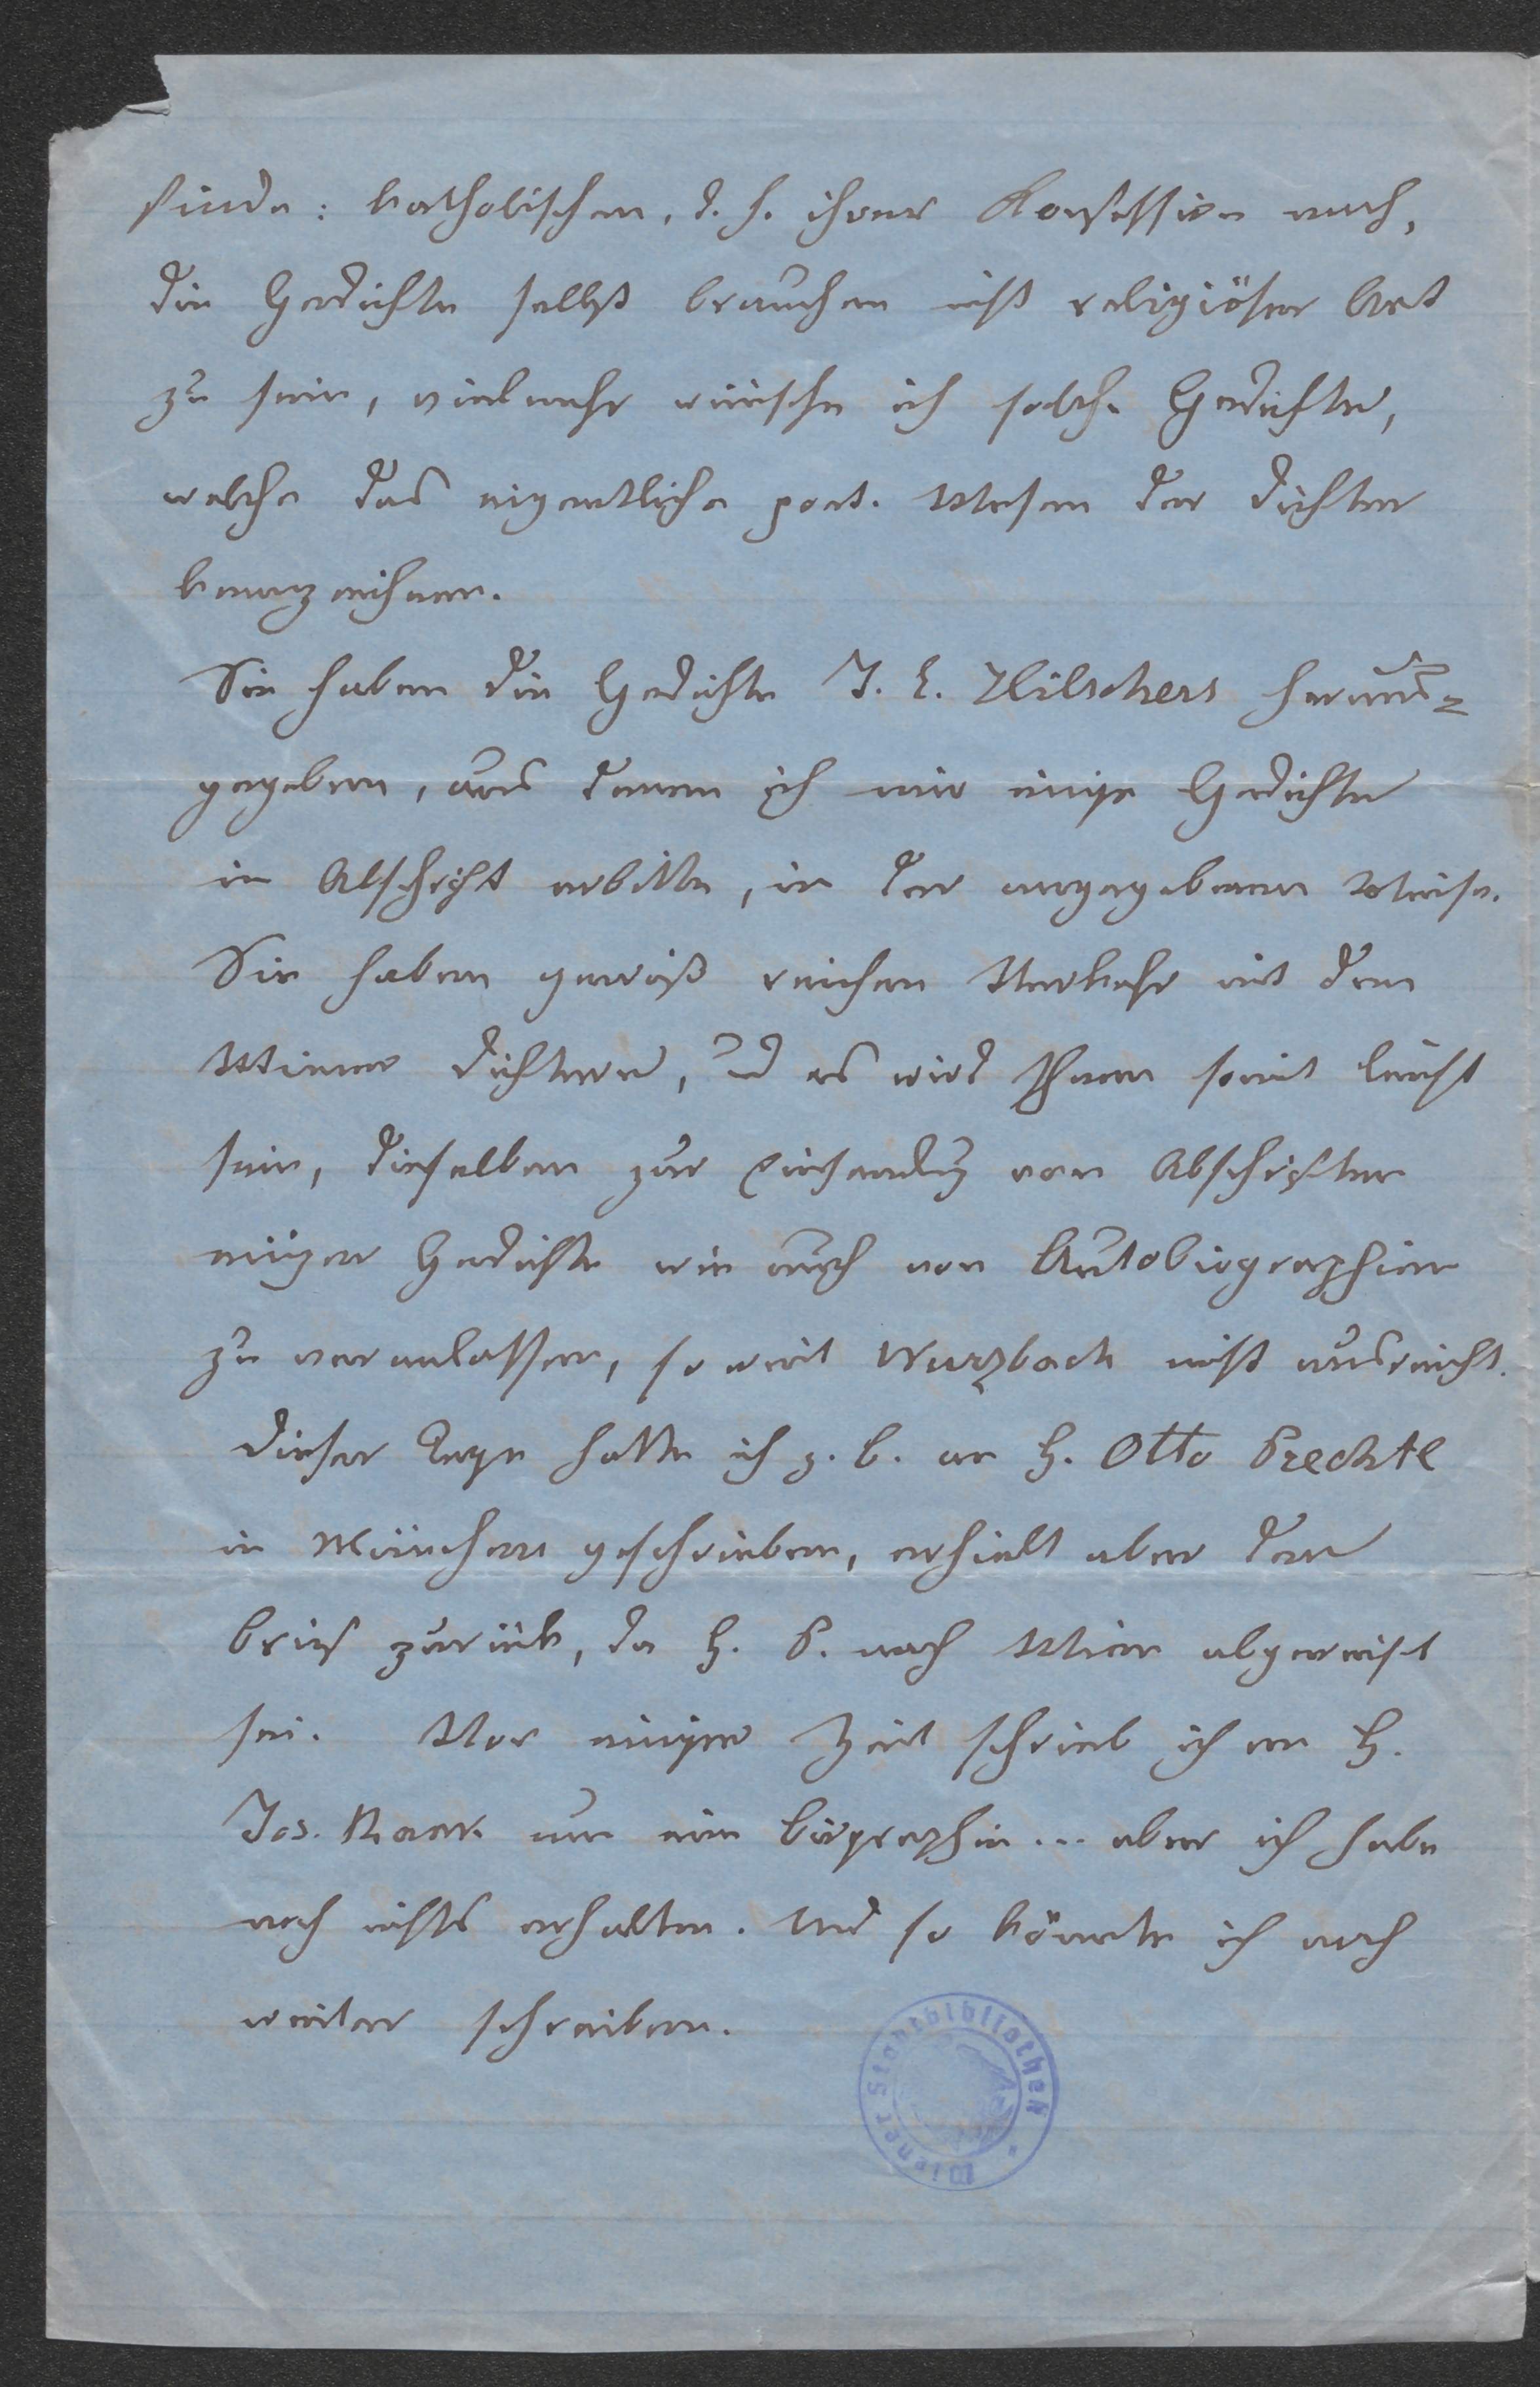 finde: katholischen, d. h. ihrer Konfession nach,
die Gedichte selbst brauchen nicht religiöser Art
zu sein, vielmehr wünsche ich solche Gedichte,
welche das eigentliche poet. Wesen der Dichter
kennzeichnen.
Sie haben die Gedichte J. E. Hilschers heraus-
gegeben, aus denen ich mir einige Gedichte
in Abschrift erbitte, in der angegebenen Weise.
Sie haben gewiß reichen Verkehr mit den
Wiener Dichtern, und es wird Ihnen somit leicht
sein, dieselben zur Einsendung von Abschriften
einiger Gedichte wie auch von Autobiographien
zu veranlassen, so weit Wurzbach nicht ausreicht.
Dieser Tage hatte ich z. B. an H. Otto Prechtl
in München geschrieben, erhielt aber den
Brief zurück, da H. P. nach Wien abgereist
sei. Vor einiger Zeit schrieb ich an H.
Jos. Rank um eine Biographie... aber ich habe
noch nichts erhalten. Und so könnte ich noch
weiter schreiben.
Wiener Stadtbibliothek